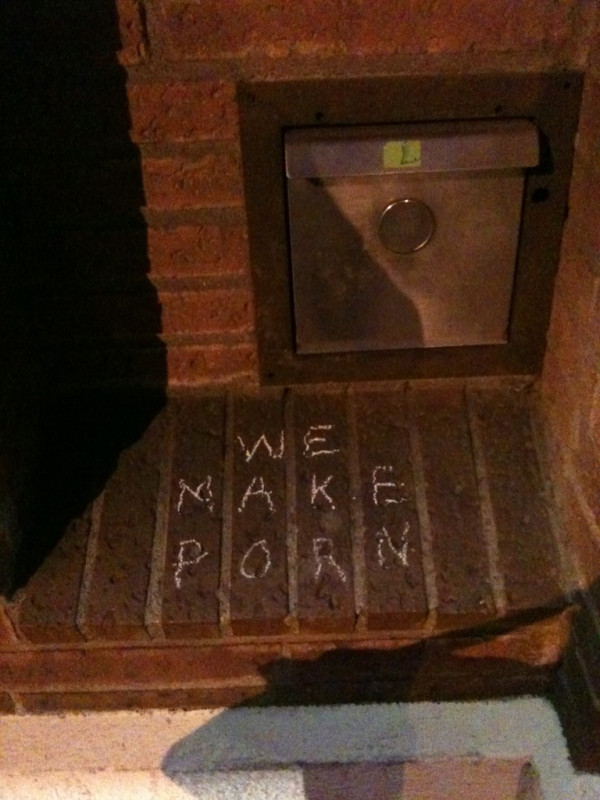 L
WE
MAKE
PORN